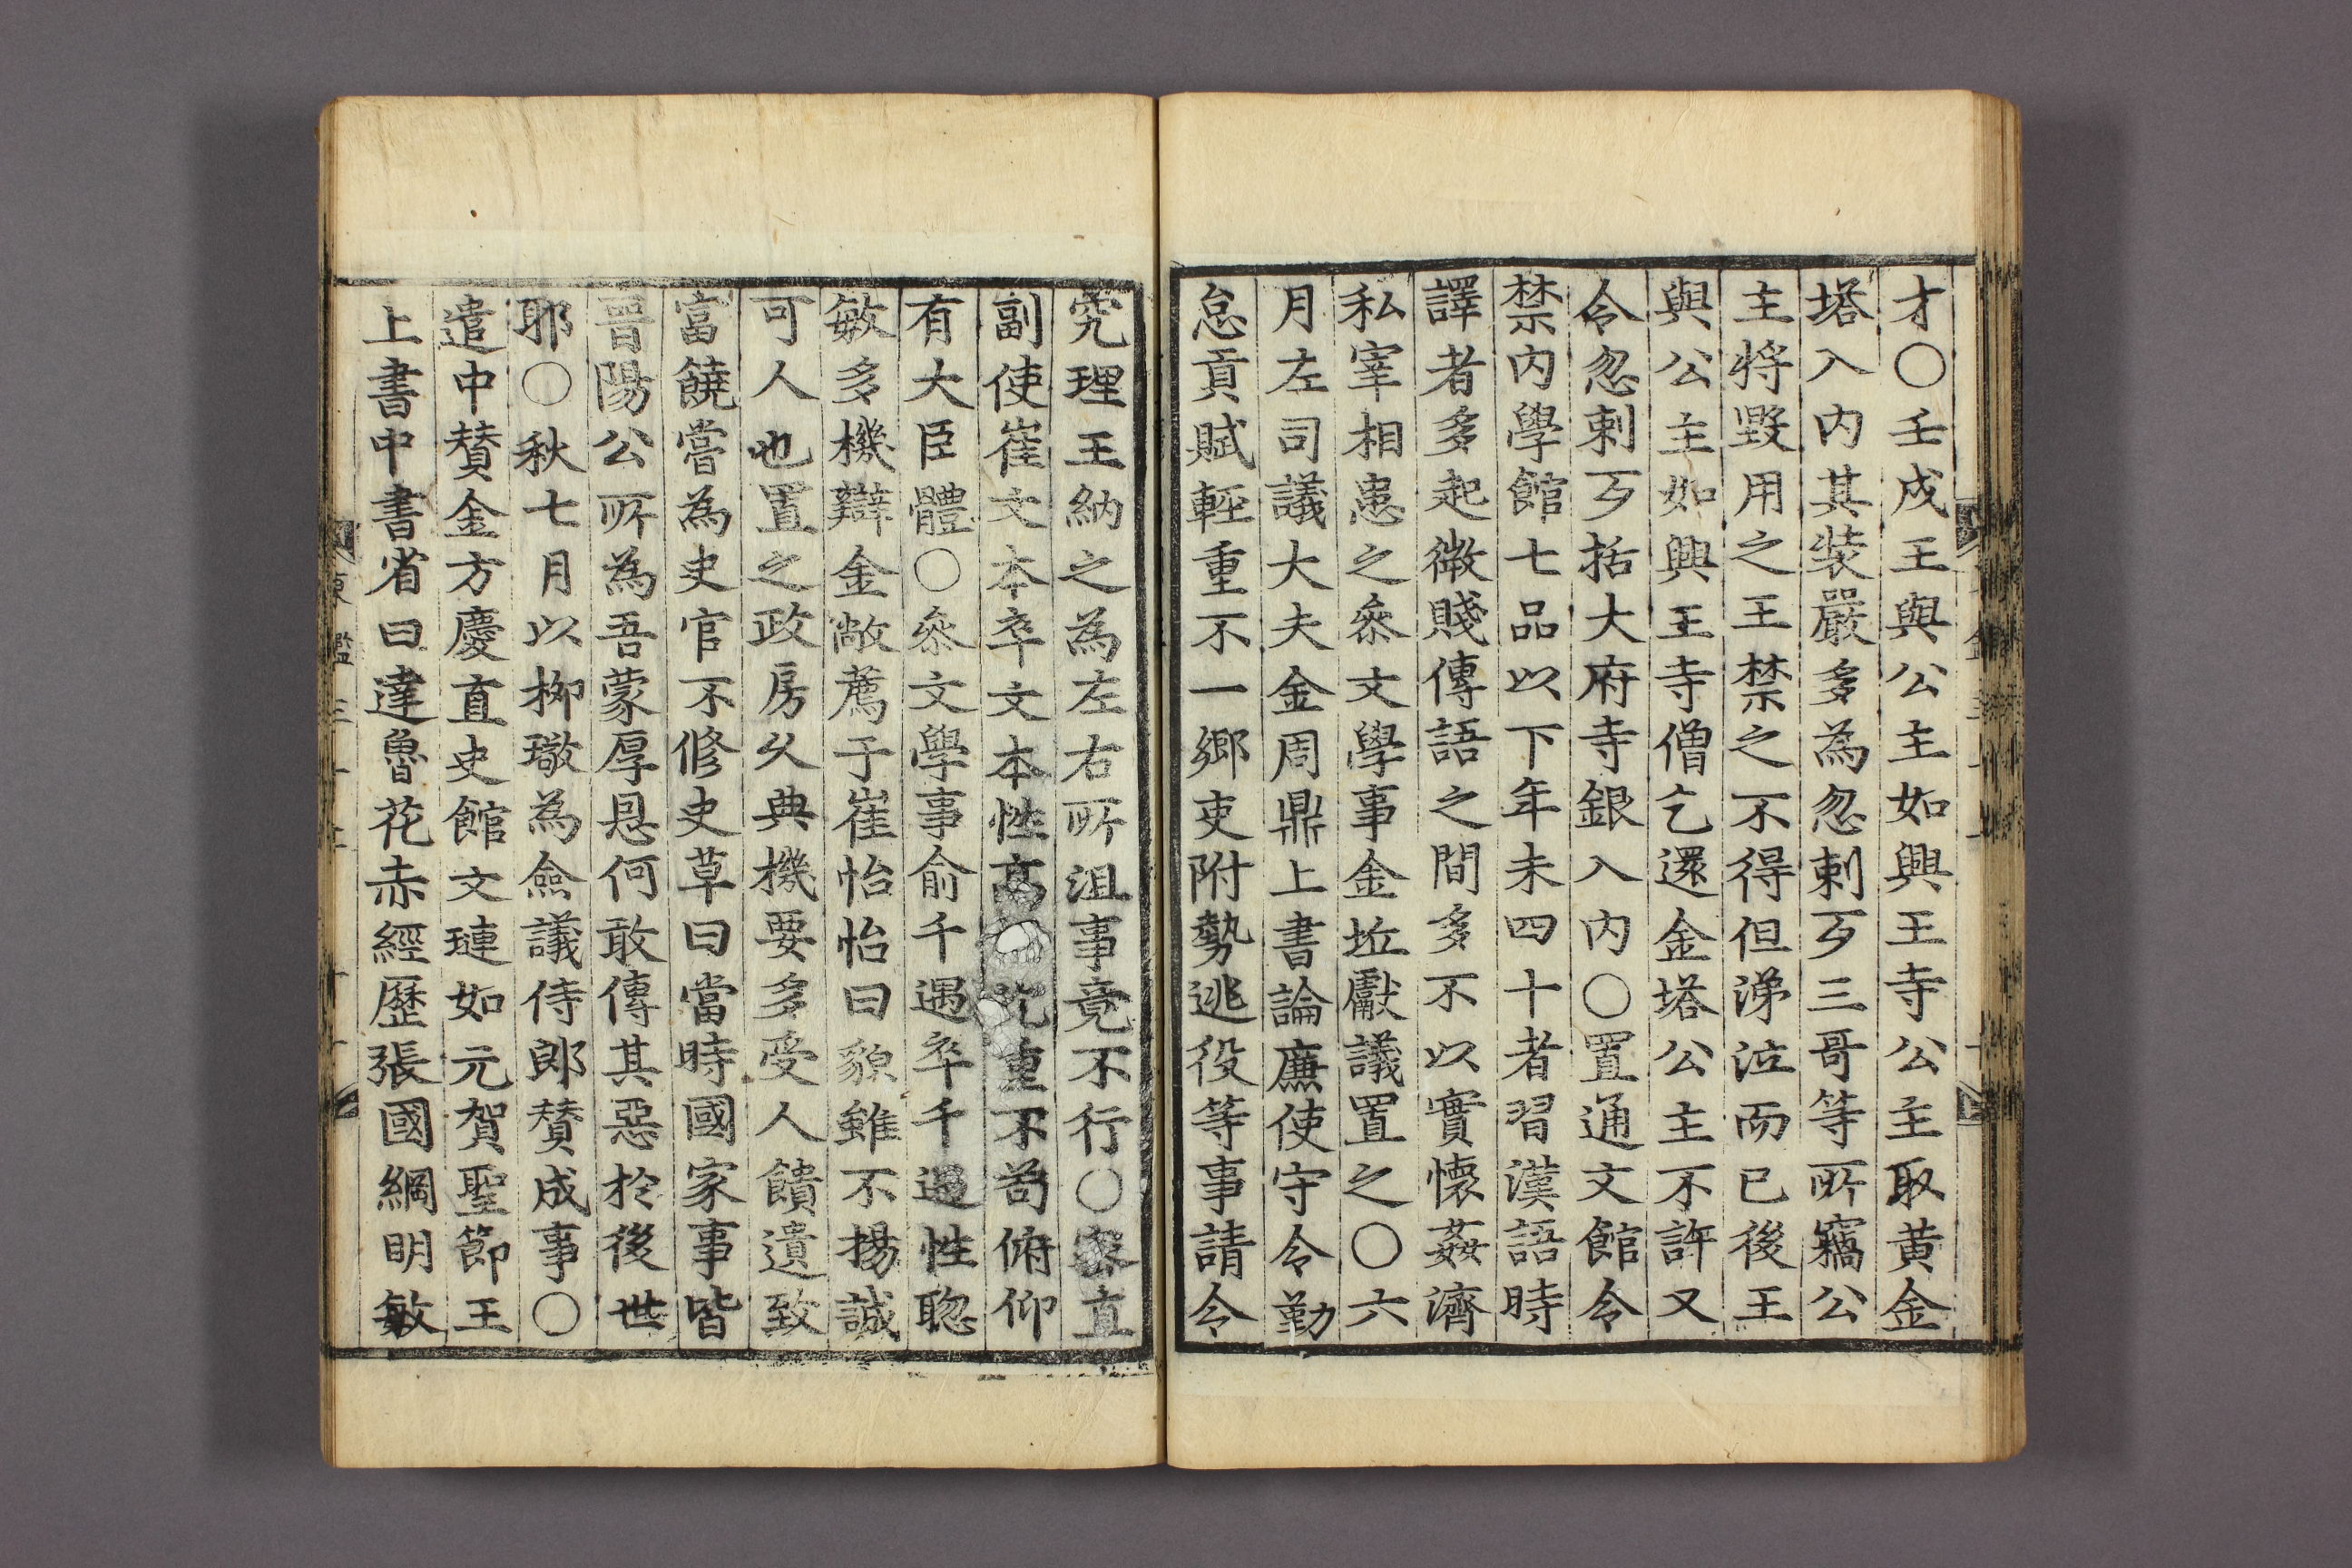 才〇壬戌王與公主如興王寺公主取黄金
塔入内其装嚴多為忽剌歹三哥等所竊公
主將毀用之王禁之不得但涕泣而已後王
與公主如興王寺僧乞還金塔公主不許又
令忽剌歹括大府寺銀入内〇置通文館令
禁内學館七品以下年未四十者習漢語時
譯者多起微賤傳語之間多不以實懷姦濟
私宰相患之叅文學事金坵獻議置之〇六
月左司議大夫金周鼎上書論廉使守令勤
怠貢賦輕重不一鄉吏附勢逃役等事請令
究理王納之為左右所沮事竟不行〇密直
副使崔文本卒文本性高 重不苟俯仰
有大臣體〇叅文學事俞千遇卒千遇性聦
敏多機辯金敞薦于崔怡怡曰貌雖不揚誠
可人也置之政房久典機要多受人饋遺致
富饒嘗為史官不修史草曰當時國家事皆
晉陽公所為吾蒙厚恩何敢傳其惡於後世
耶〇秋七月以栁璥為僉議侍郎賛成事〇
遣中賛金方慶直史館文璉如元賀聖節王
上書中書省曰達魯花赤經歷張國綱明敏